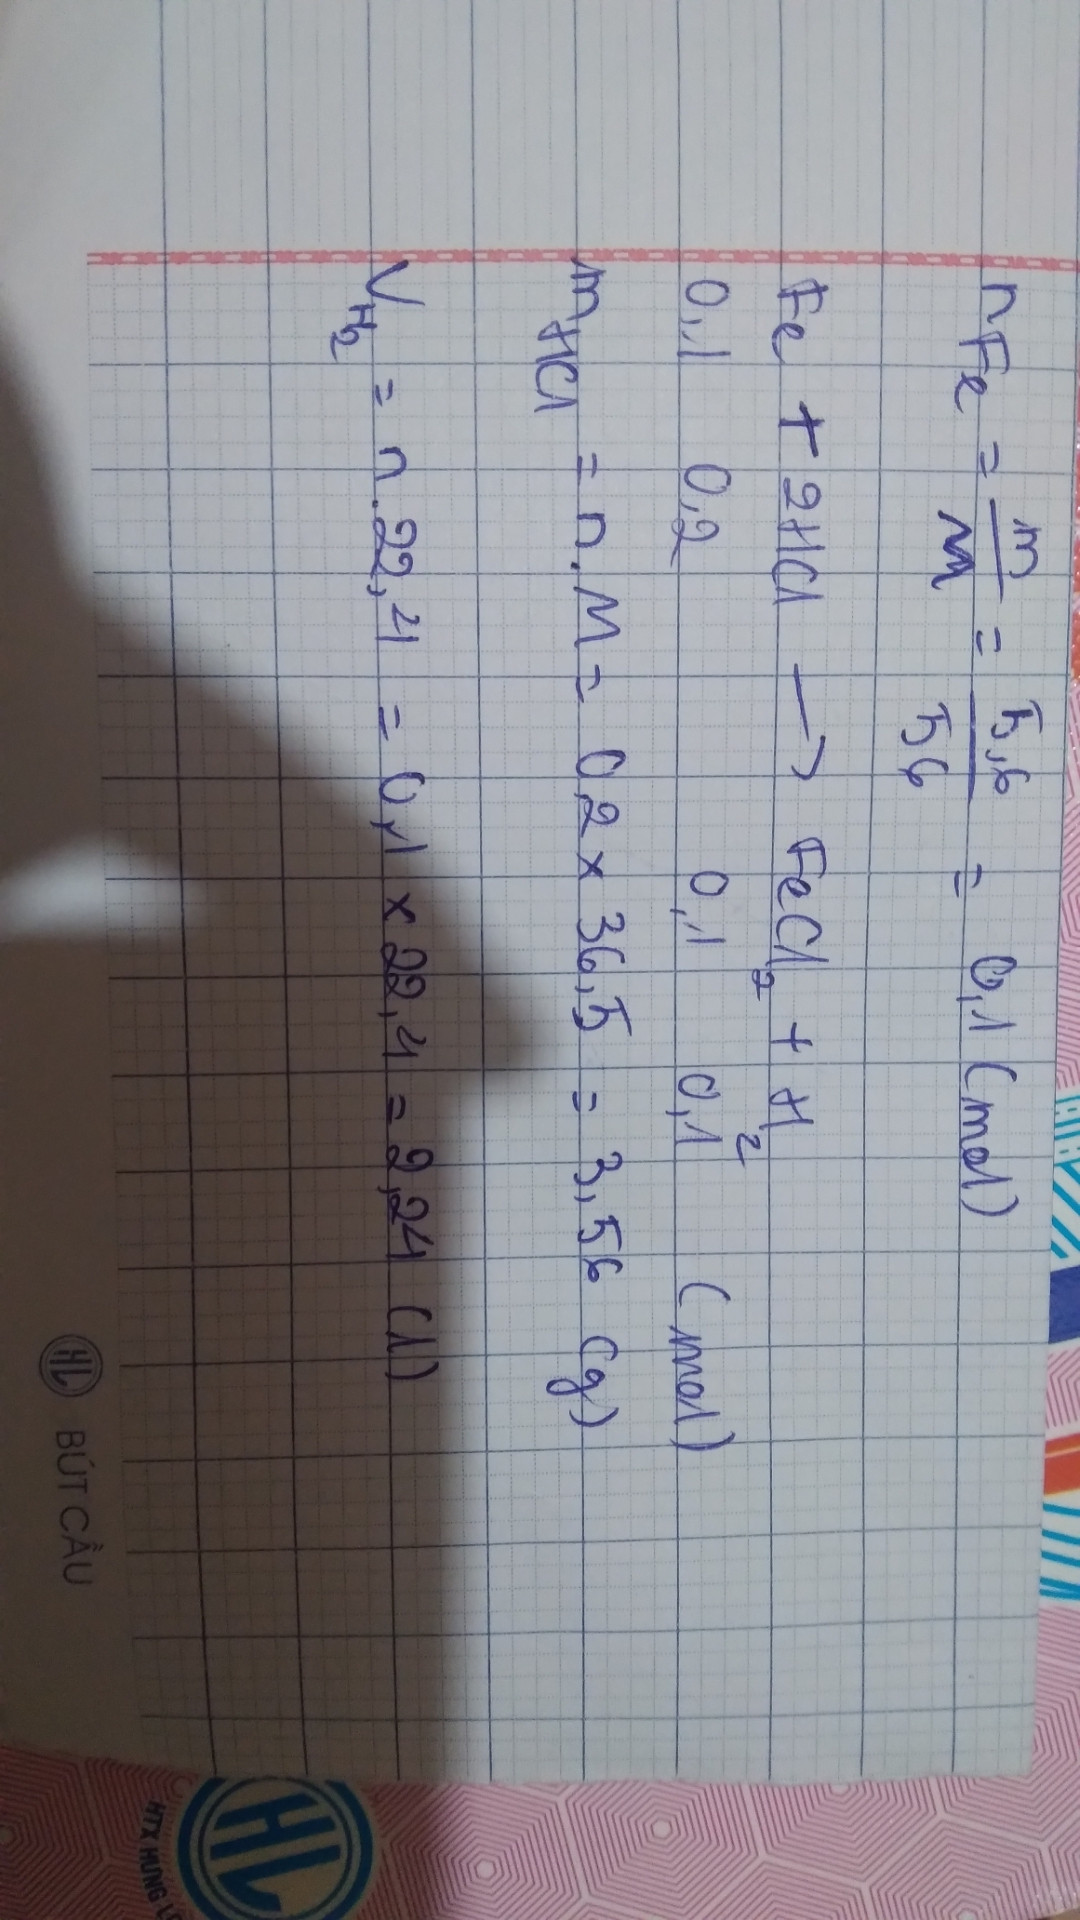 nFe = m/M = 5,6/56 = 0,1 (mol)
Fe + 2HCl → FeCl₂ + H₂
0,1 0,2 0,1 0,1 (mol)
mHCl = n.M = 0,2 x 36,5 = 3,56 (g)
VH₂ = n.22,4 = 0,1 x 22,4 = 2,24 (l)
HL BÚT CẦU
HL